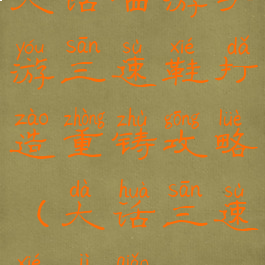 yóu sān sù xié dǎ
游三速鞋打
zào zhòng zhù gōng lüè
造重铸攻略
dà huà sān sù
（大话三速